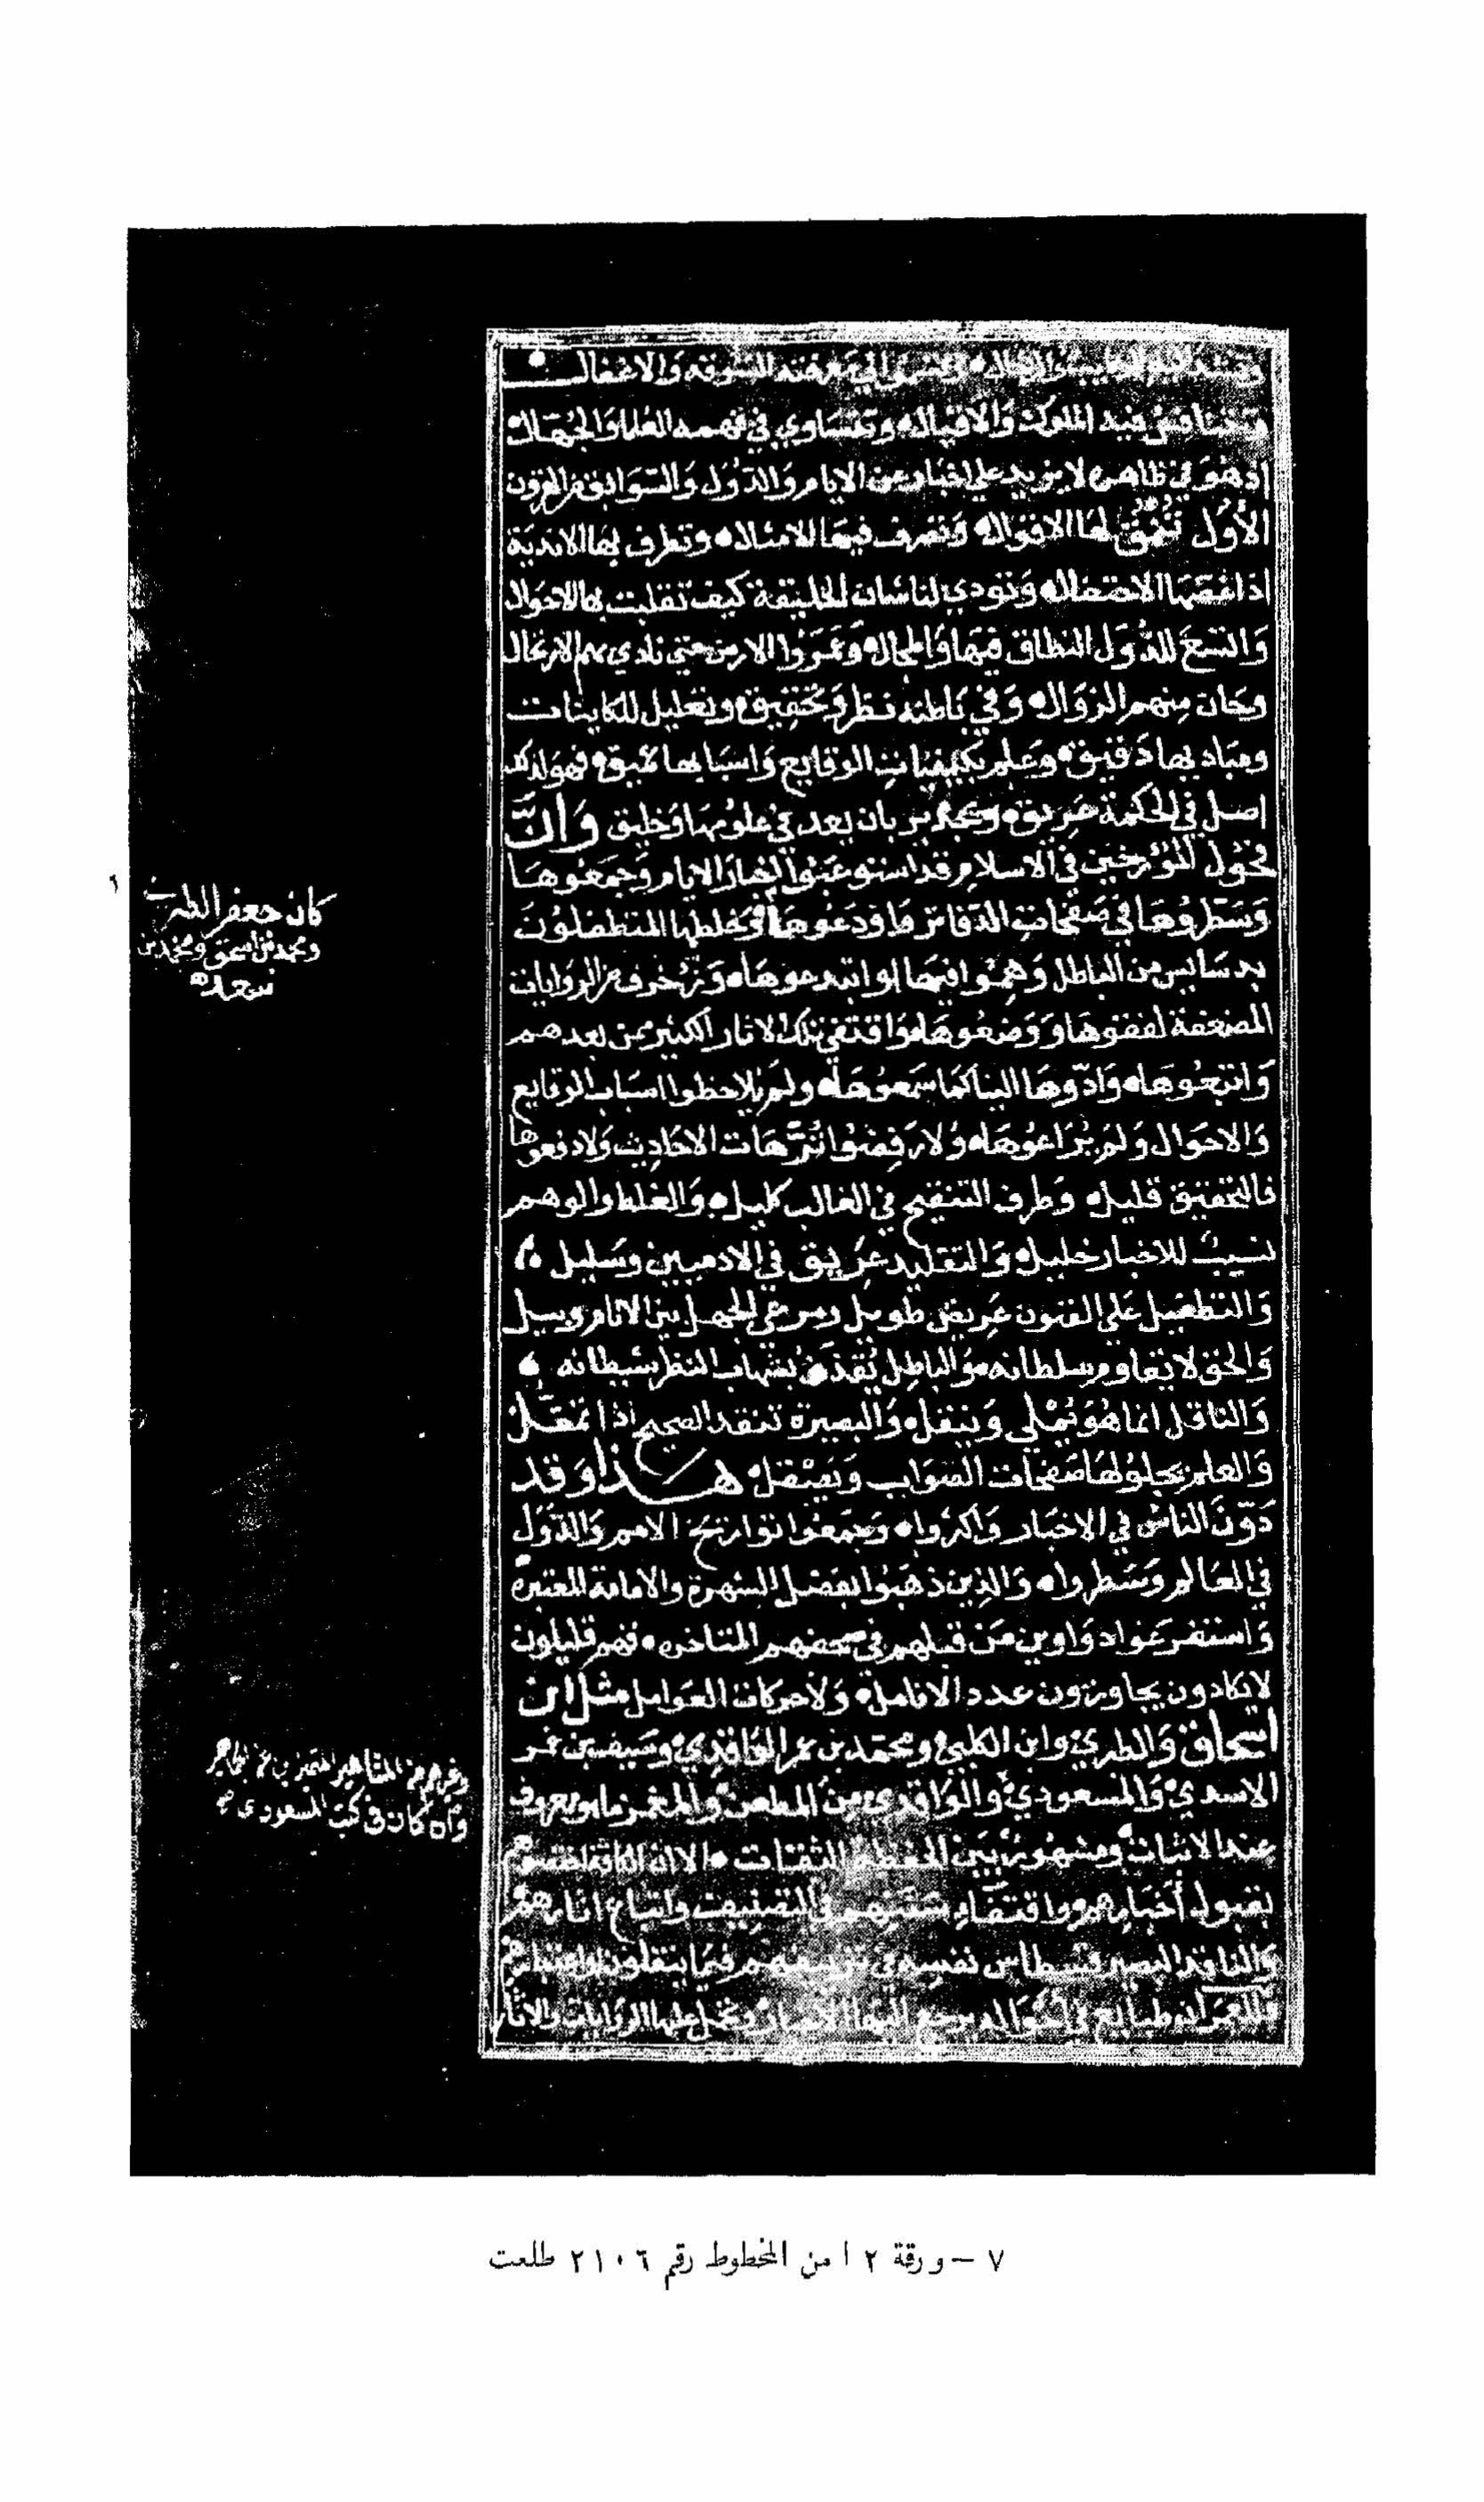 وتشد اليه الركايب والرحال وتسموا الي معرفته السوقة والاغفال
وتتنافس فيه الملوك والاقيال وتتساوي في فهمه العلما والجهال
اذ هو في ظاهره لا يزيد علي اخبار عن الايام والدول والسوابق من القرون
الأول تنمق لها الاقوال وتصرف فيها الامثال وتطرف بها الاندية
اذا غصها الاحتفال وتودي لنا شان الخليقة كيف تقلبت بها الاحوال
واتسع للدول النطاق فيها والمجال وعمروا الارض حتي نادي بهم الارتحال
وحان منهم الزوال وفي باطنه نظر وتحقيق وتعليل للكاينات
ومباديها دقيق وعلم بكيفيات الوقايع واسبابها عميق فهو لذلك
اصل في الحكمة عريق وجدير بان يعد في علومها وخليق وان
فحول المؤرخين في الاسلام قد استوعبوا اخبار الايام وجمعوها
وسطروها في صفحات الدفاتر واودعوها وخلطها المتطفلون
بدسايس من الباطل وهموا فيها او ابتدعوها وزخرف من الروايات
المضعفة لفقوها ووضعوها واقتفي تلك الاثار الكثير ممن بعدهم
واتبعوها وادوها الينا كما سمعوها ولم يلاحظوا اسباب الوقايع
والاحوال ولم يراعوها ولا رفضوا ترهات الاحاديث ولا دفعوها
فالتحقيق قليل وطرف التنقيح في الغالب كليل والغلط والوهم
نسيب للاخبار خليل والتقليد عريق في الادميين وسليل
والتطفيل علي الفنون عريض طويل ومرعي الجهل بين الانام وبيل
والحق لا يقاوم سلطانه والباطل يقذف بشهاب النظر شيطانه
والناقل انما هو يملي وينقل والبصيرة تنقد الصحيح اذا تمقل
والعلم يجلو لها صفحات الصواب ويصقل هذا وقد
دون الناس في الاخبار واكثروا وجمعوا تواريخ الامم والدول
في العالم وسطروا والذين ذهبوا بفضل الشهرة والامامة المعتبرة
واستفرغوا دواوين من قبلهم في صحفهم المتاخرة فهم قليلون
لا يكادون يجاوزون عدد الانامل ولا حركات العوامل مثل ابن
اسحاق والطبري وابن الكلبي ومحمد بن عمر الواقدي وسيف بن عمر
الاسدي والمسعودي والواقدي من المطعن والمغمز ما هو معروف
عند الاثبات ومشهور بين الحفظة الثقات الا ان الكافة اختصوهم
بقبول أخبارهم واقتفاء سننهم في التصنيف واتباع اثارهم
والناقد البصير قسطاس نفسه في تزييفهم فيما ينقلون او اعتبارهم
فللعمران طبايع في احواله يرجع اليها الاخبار وتحمل عليها الروايات والاثار
كان جعفر الطبري
ومحمد بن اسحق ومحمد بن
سعد
وغيرهم من المشاهير المتميزين عن الجماهير
وان كان في كتب المسعودي
٧ – ورقة ٢ ا من المخطوط رقم ٢١٠٦ طلعت